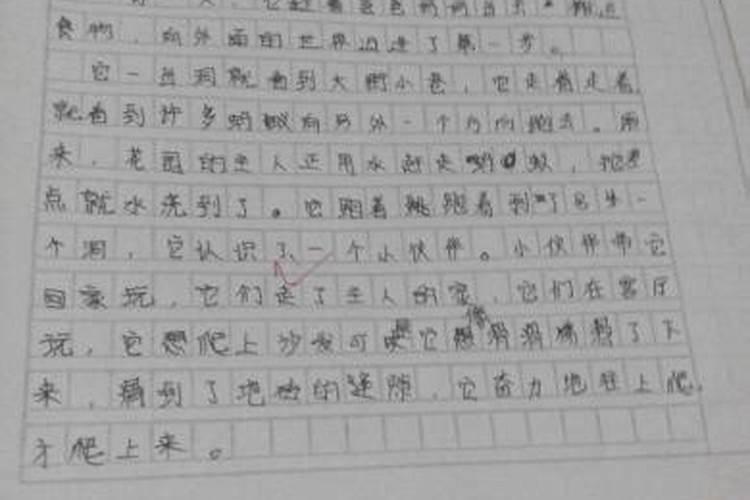 天，它趁着爸爸妈妈出去
食物，向外面的世界迈进了第一步。
它一出洞就看到大街小巷，它走着走着，
就看到许多蚂蚁向另外一个方向跑去。原
来，花园的主人正用水赶走蚂蚁，它差
点就水洗到了。它跑着跳跑着到了另外一
个洞，它认识了一个小伙伴。小伙伴带它
回家玩，它们走了主人的家，它们在客厅
玩，它想爬上沙发可是它想滑滑滑了下
来，痛到了地砖的缝隙，它奋力地往上爬，
才爬上来。